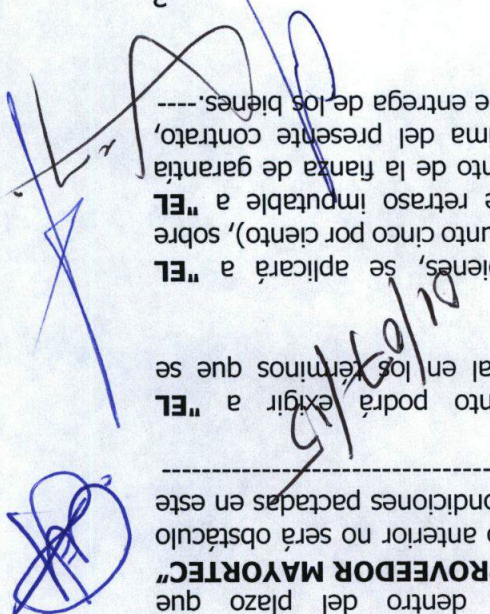 dentro del plazo que
ROVEEDOR MAYORTEC"
o anterior no será obstáculo
ondiciones pactadas en este
----------------------------
nto podrá exigir a "EL
al en los términos que se
bienes, se aplicará a "EL
unto cinco por ciento), sobre
e retraso imputable a "EL
nto de la fianza de garantía
ima del presente contrato,
e entrega de los bienes.----